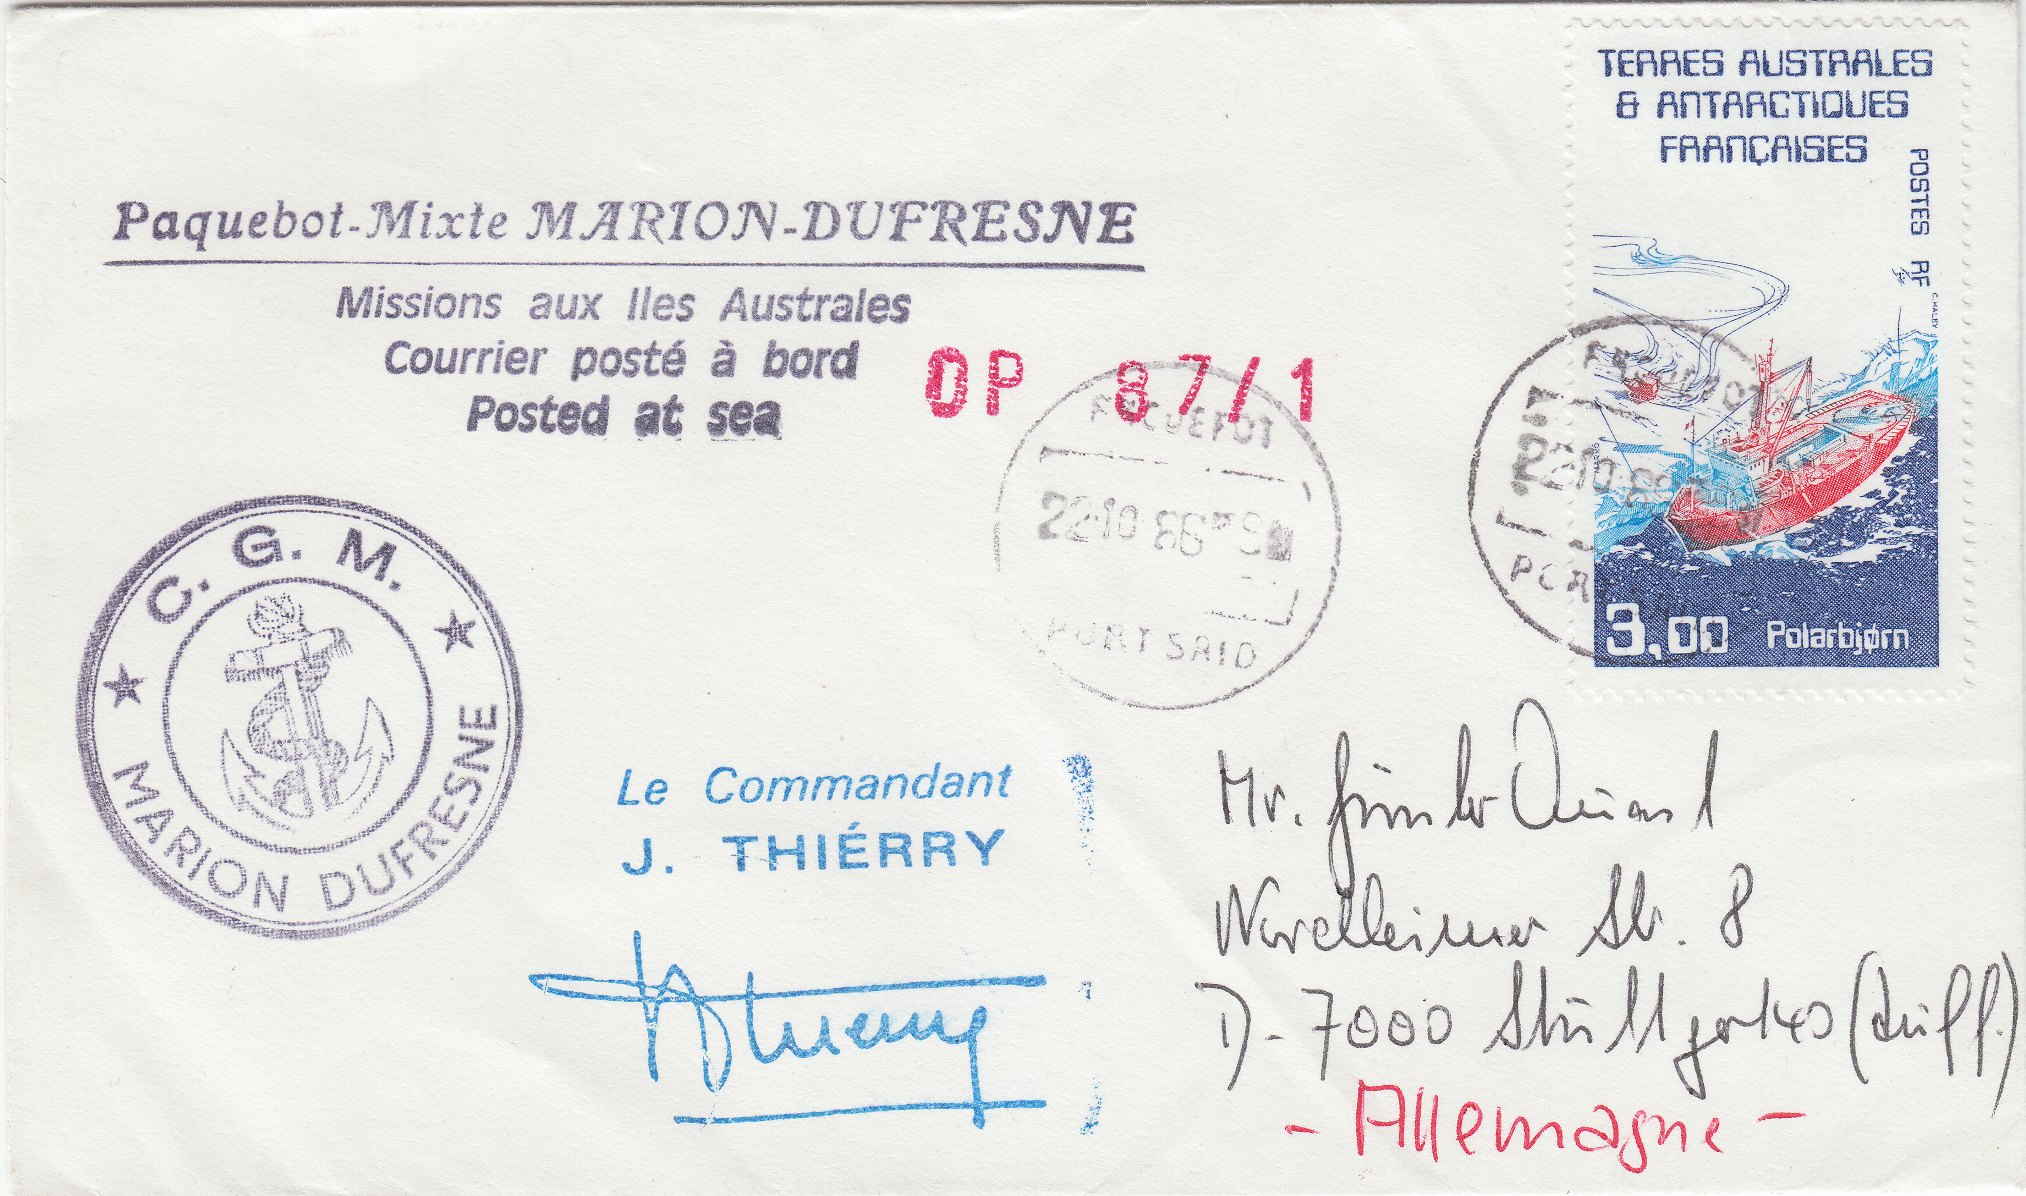 Paquebot-Mixte MARION-DUFRESNE
Missions aux Iles Australes
Courrier posté à bord
Posted at sea
OP 87/1
TERRES AUSTRALES
& ANTARCTIQUES
FRANÇAISES
POSTES RF
C.HALEY
3,00 Polarbjørn
PAQUEBOT
22.10 86
PORT SAID
PAQUEBOT
22.10
C. G. M.
MARION DUFRESNE
Le Commandant
J. THIÉRRY
Mr. Günter
Str. 8
D-7000 Stuttgart 40 (Zuff.)
- Allemagne -